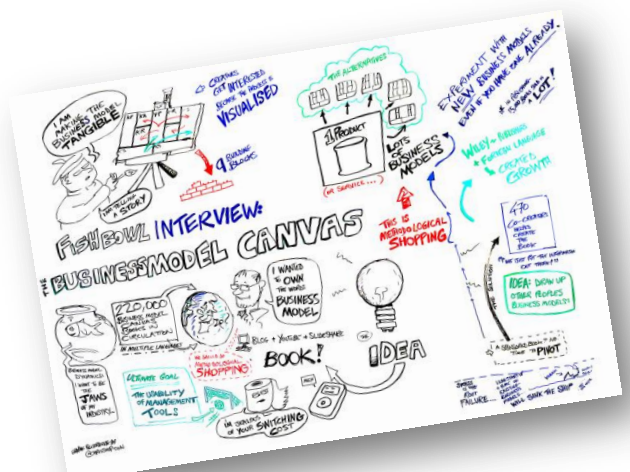 I AM
MAKING THE
BUSINESS MODEL
TANGIBLE
I'M TELLING
A STORY
CREATIVES
GET INTERESTED
BECAUSE THE PROCESS IS
VISUALISED
9 BUILDING
BLOCKS
THE ALTERNATIVES
1 PRODUCT
(OR SERVICE...)
LOTS
OF
BUSINESS
MODELS
THIS IS
METHODOLOGICAL
SHOPPING
EXPERIMENT WITH
NEW BUSINESS MODELS
EVEN IF YOU HAVE ONE ALREADY.
LOT!
GROWTH
FISHBOWL INTERVIEW:
THE
BUSINESSMODEL CANVAS
470
CO-CREATORS
HELPED
CREATE
THE
BOOK
IDEA: DRAW UP
OTHER PEOPLE'S
BUSINESS MODELS!
TIME TO PIVOT
220,000
BUSINESS MODEL
CANVAS
BOOKS IN
CIRCULATION
IN MULTIPLE LANGUAGES
I WANTED
TO OWN
THE WORD
BUSINESS
MODEL
BLOG + YOUTUBE + SLIDESHARE
BOOK!
THE IDEA
METHODOLOGICAL
SHOPPING
I WANT TO BE
THE
JAWS
OF MY
INDUSTRY.
ULTIMATE GOAL
THE USABILITY
OF MANAGEMENT
TOOLS
I'M JEALOUS
OF YOUR SWITCHING
COST
FAILURE...
WILL SINK THE SHIP